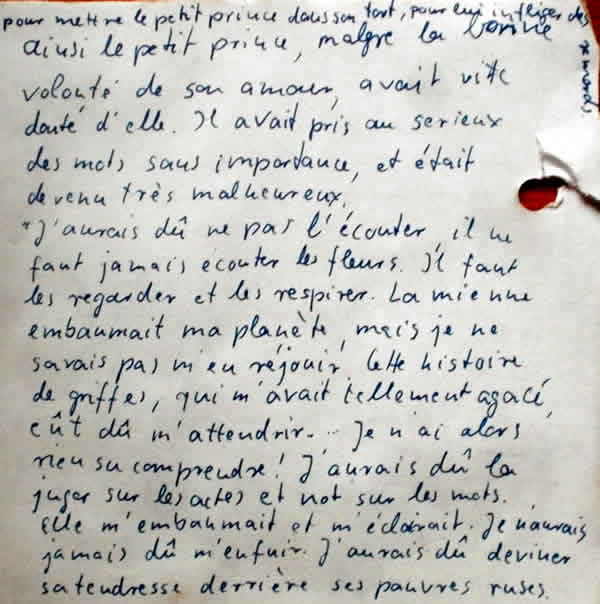 pour mettre le petit prince dans son tort, pour lui infliger des
remords
ainsi le petit prince, malgre la bonne
volonté de son amour, avait vite
douté d'elle. Il avait pris au serieux
des mots sans importance, et était
devenu très malheureux.
"J'aurais dû ne pas l'écouter, il ne
faut jamais écouter les fleurs. Il faut
les regarder et les respirer. La mienne
embaumait ma planète, mais je ne
savais pas m'en réjouir. Cette histoire
de griffes, qui m'avait tellement agacé,
eût dû m'attendrir... Je n'ai alors
rien su comprendre! J'aurais dû la
juger sur les actes et not sur les mots.
Elle m'embaumait et m'éclairait. Je n'aurais
jamais dû m'enfuir. J'aurais dû deviner
sa tendresse derrière ses pauvres ruses.